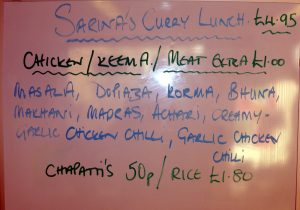 SARINA'S CURRY LUNCH. £4.95
CHICKEN/KEEMA/MEAT EXTRA £1.00
MASALA, DOPIAZA, KORMA, BHUNA,
MAKHANI, MADRAS, ACHARI, CREAMY-
GARLIC CHICKEN CHILLI, GARLIC CHICKEN
CHILLI
CHAPATTI'S 50p/RICE £1.80